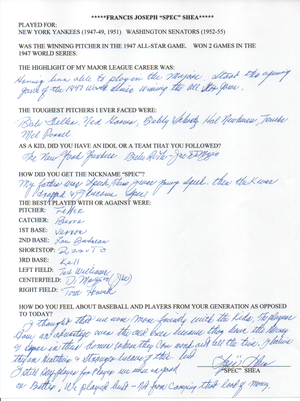 *****FRANCIS JOSEPH "SPEC" SHEA*****
PLAYED FOR:
NEW YORK YANKEES (1947-49, 1951) WASHINGTON SENATORS (1952-55)
WAS THE WINNING PITCHER IN THE 1947 ALL-STAR GAME. WON 2 GAMES IN THE
1947 WORLD SERIES.
THE HIGHLIGHT OF MY MAJOR LEAGUE CAREER WAS:
Having been able to play in the Majors. Started the opening
game of the 1947 World Series winning the All Star Game.
THE TOUGHEST PITCHERS I EVER FACED WERE:
Bob Feller, Ned Garver, Bobby Shantz Hal Newhouser,
Mel Parnell
AS A KID, DID YOU HAVE AN IDOL OR A TEAM THAT YOU FOLLOWED?
The New York Yankees Babe Ruth - Joe DiMaggio
HOW DID YOU GET THE NICKNAME "SPEC"?
My father was Speck, then young Speck. then the K was
dropped & I became Spec
THE BEST I PLAYED WITH OR AGAINST WERE:
PITCHER: Feller
CATCHER: Berra
1ST BASE: Vernon
2ND BASE: Lou Boudreau
SHORTSTOP: Rizzuto
3RD BASE: Kell
LEFT FIELD: Ted Williams
CENTERFIELD: DiMaggio (Joe)
RIGHT FIELD: Tom Henrich
HOW DO YOU FEEL ABOUT BASEBALL AND PLAYERS FROM YOUR GENERATION AS OPPOSED
TO TODAY?
I thought that we were more friendly with the kids. The players
have an advantage over the old ones because they have the money
&
they are healthier & stronger because of this. But
player for player we were as good
or better. We played ball - not for coming that kind of money.
"Spec" Shea
"SPEC" SHEA